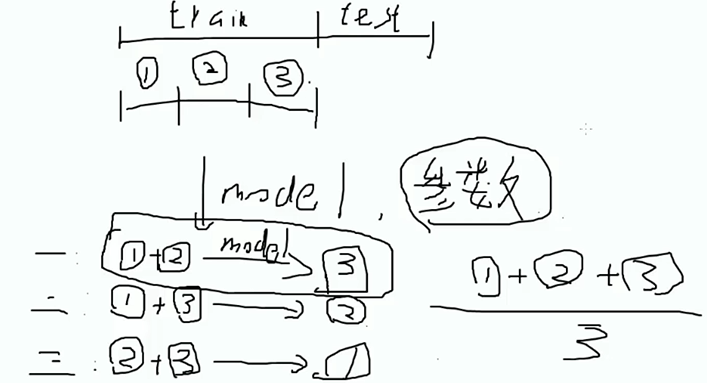 train test
① ② ③
model 参数
一: ①+② model → ③
二: ①+③ → ②
三: ②+③ → 1
①+②+③
3